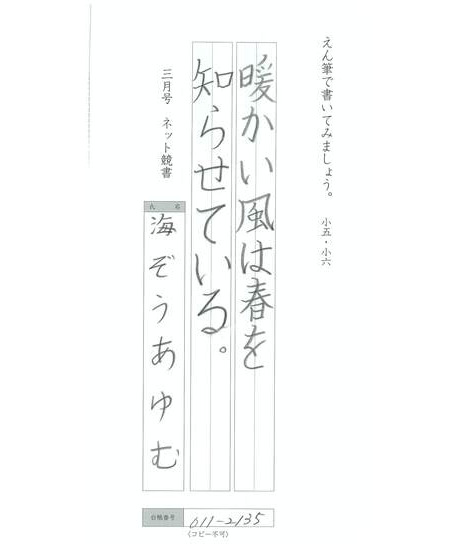 えん筆で書いてみましょう。 小五・小六
暖かい風は春を
知らせている。
三月号 ネット競書
氏名
海ぞうあゆむ
会員番号 011-2135
(コピー不可)